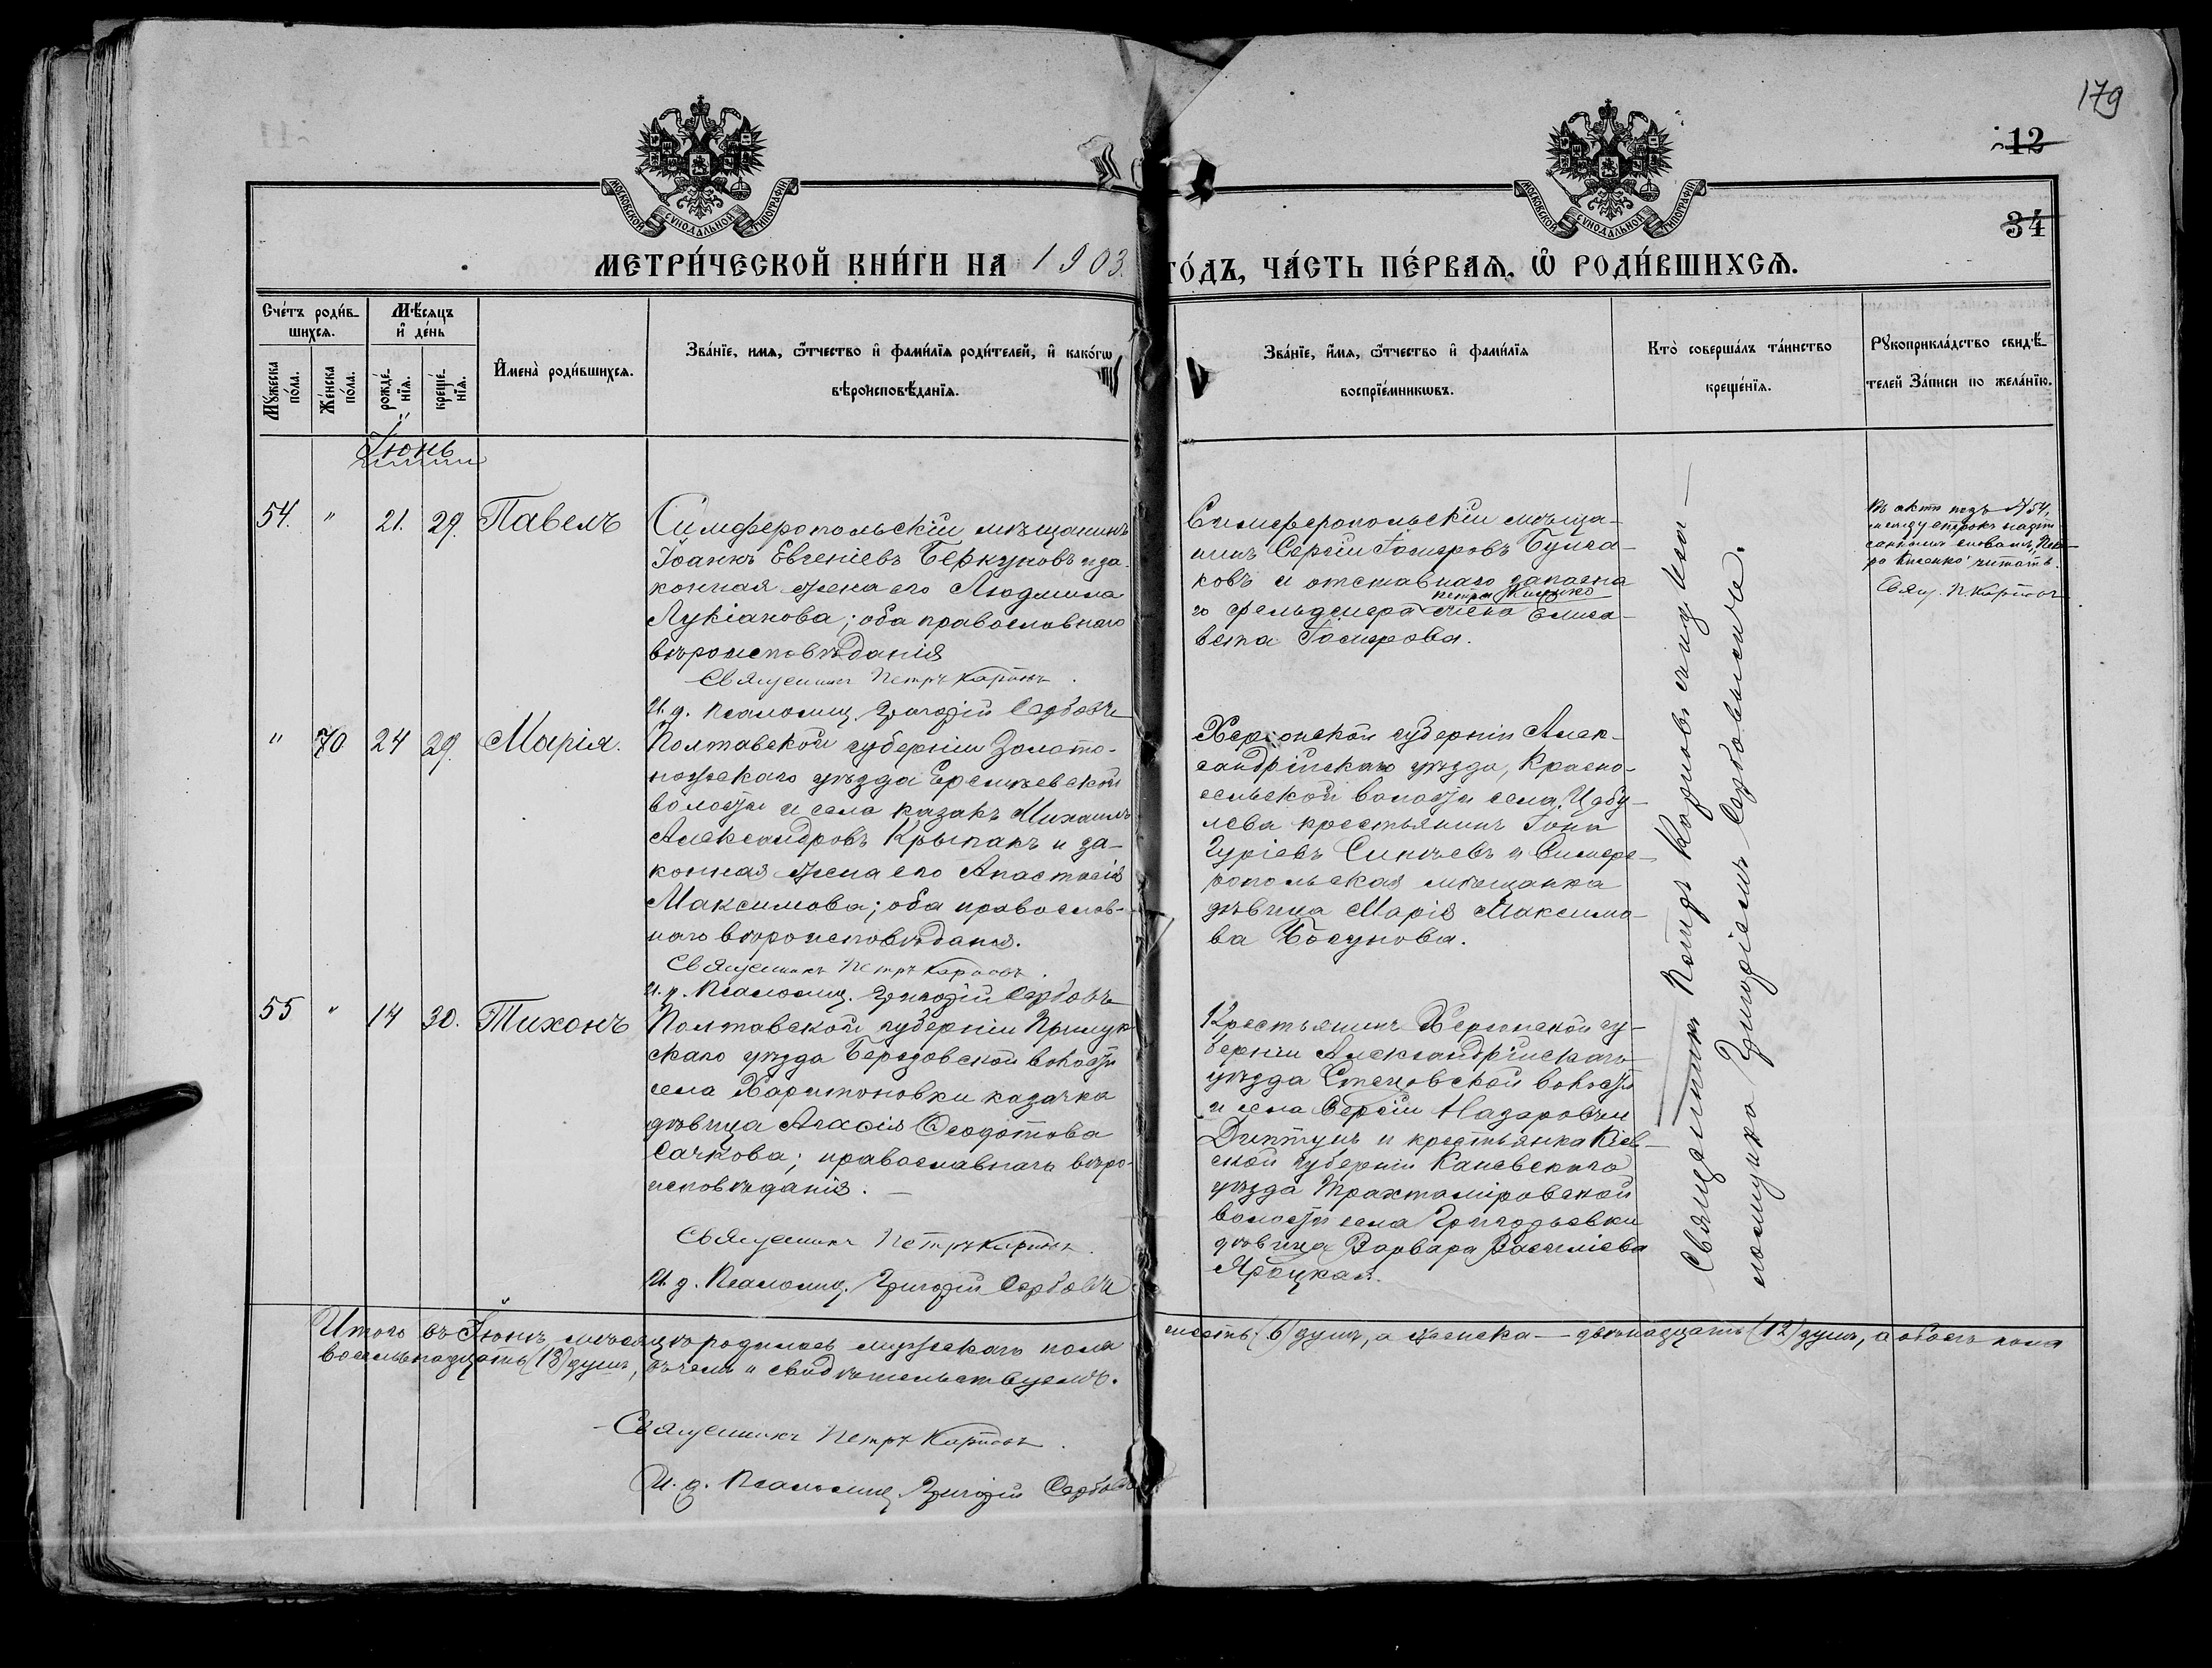 179
12
34
МОСКОВСКОЙ СѴНОДАЛЬНОЙ ТИПОГРАФІИ
МОСКОВСКОЙ СѴНОДАЛЬНОЙ ТИПОГРАФІИ
МЕТРИ́ЧЕСКОЙ КНИ́ГИ НА 1903. ГО́ДЪ, ЧА́СТЬ ПЕ́РВАѦ, Ѿ РОДИ́ВШИХСѦ.
Сче́тъ роди́в-
шихсѧ.
Мꙋ́жеска по́ла.
Же́нска по́ла.
Мѣ́сѧцъ
и҆ де́нь
рожде́-
нїѧ.
креще́-
нїѧ.
И҆мена̀ роди́вшихсѧ.
Зва́нїе, имѧ, ѻ҆́тчество и҆ фами́лїѧ роди́телей, и҆ како́гѡ
вѣроисповѣ́данїѧ.
Зва́нїе, и҆́мѧ, ѻ҆́тчество и҆ фами́лїѧ
воспрїе́мникѡвъ.
Кто̀ соверша́лъ та́инство
креще́нїѧ.
Рꙋкоприкла́дство свидѣ́-
телей За́писи по жела́нїю.
Іюнь
54. " 21. 29. Павелъ
Симферопольскій мѣщанинъ
Іоаннъ Евгеніевъ Беркуновъ и за-
конная жена его Людмила
Лукіанова; оба православнаго
вѣроисповѣданія
Священникъ Петръ Карповъ.
И. д. Псаломщ. Григорій Сербовъ
Симферопольскій мѣща-
нинъ Сергій Іосифовъ Булга-
ковъ и отставнаго запасна
Петра Кищенко
го фельдшера жена Елиса-
вета Іосифова.
Въ актѣ подъ №54,
между строкъ надпи
санныя слова „Пет-
ра Кищенко" читать.
Свящ. П. Карповъ
" 70 24 29. Марія.
Полтавской губерніи Золото-
ношскаго уѣзда Еремѣевской
волости и села казакъ Михаилъ
Александровъ Крыпакъ и за-
конная жена его Анастасія
Максимова; оба православ-
наго вѣроисповѣданія.
Священникъ Петръ Карповъ.
И. д. Псаломщ. Григорій Сербовъ
Херсонской губерніи Алек-
сандрійскаго уѣзда, Красно-
сельской волости села Цыбу-
лева крестьянинъ Іона
Гуріевъ Синяевъ и Симфе-
ропольская мѣщанка
дѣвица Марія Максимо-
ва Босунова.
55 " 14 30. Тихонъ
Полтавской губерніи Прилук-
скаго уѣзда Березовской волости
села Харитоновки казачка
дѣвица Агафія Ѳеодотова
Сачкова; православнаго вѣро-
исповѣданія. —
Священникъ Петръ Карповъ.
И. д. Псаломщ. Григорій Сербовъ
Крестьянинъ Херсонской гу-
берніи Александрійскаго
уѣзда Стецовской волости
и села Сергій Назаровъ
и крестьянка Кіев-
ской губерніи Каневскаго
уѣзда Трахтомировской
волости села Григорьевки
дѣвица Варвара Василіева
Яроцкая.
Священникъ Петръ Карповъ съ и. д. Псал-
ломщика Григоріемъ Сербовымъ.
Итого въ Іюнѣ мѣсяцѣ родилось мужескаго пола шесть (6) душъ, а женска — двѣнадцать (12) душъ, а обоего пола
восемьнадцать (18) душъ, въ чемъ и свидѣтельствуемъ.
Священникъ Петръ Карповъ.
И. д. Псаломщ. Григорій Сербовъ